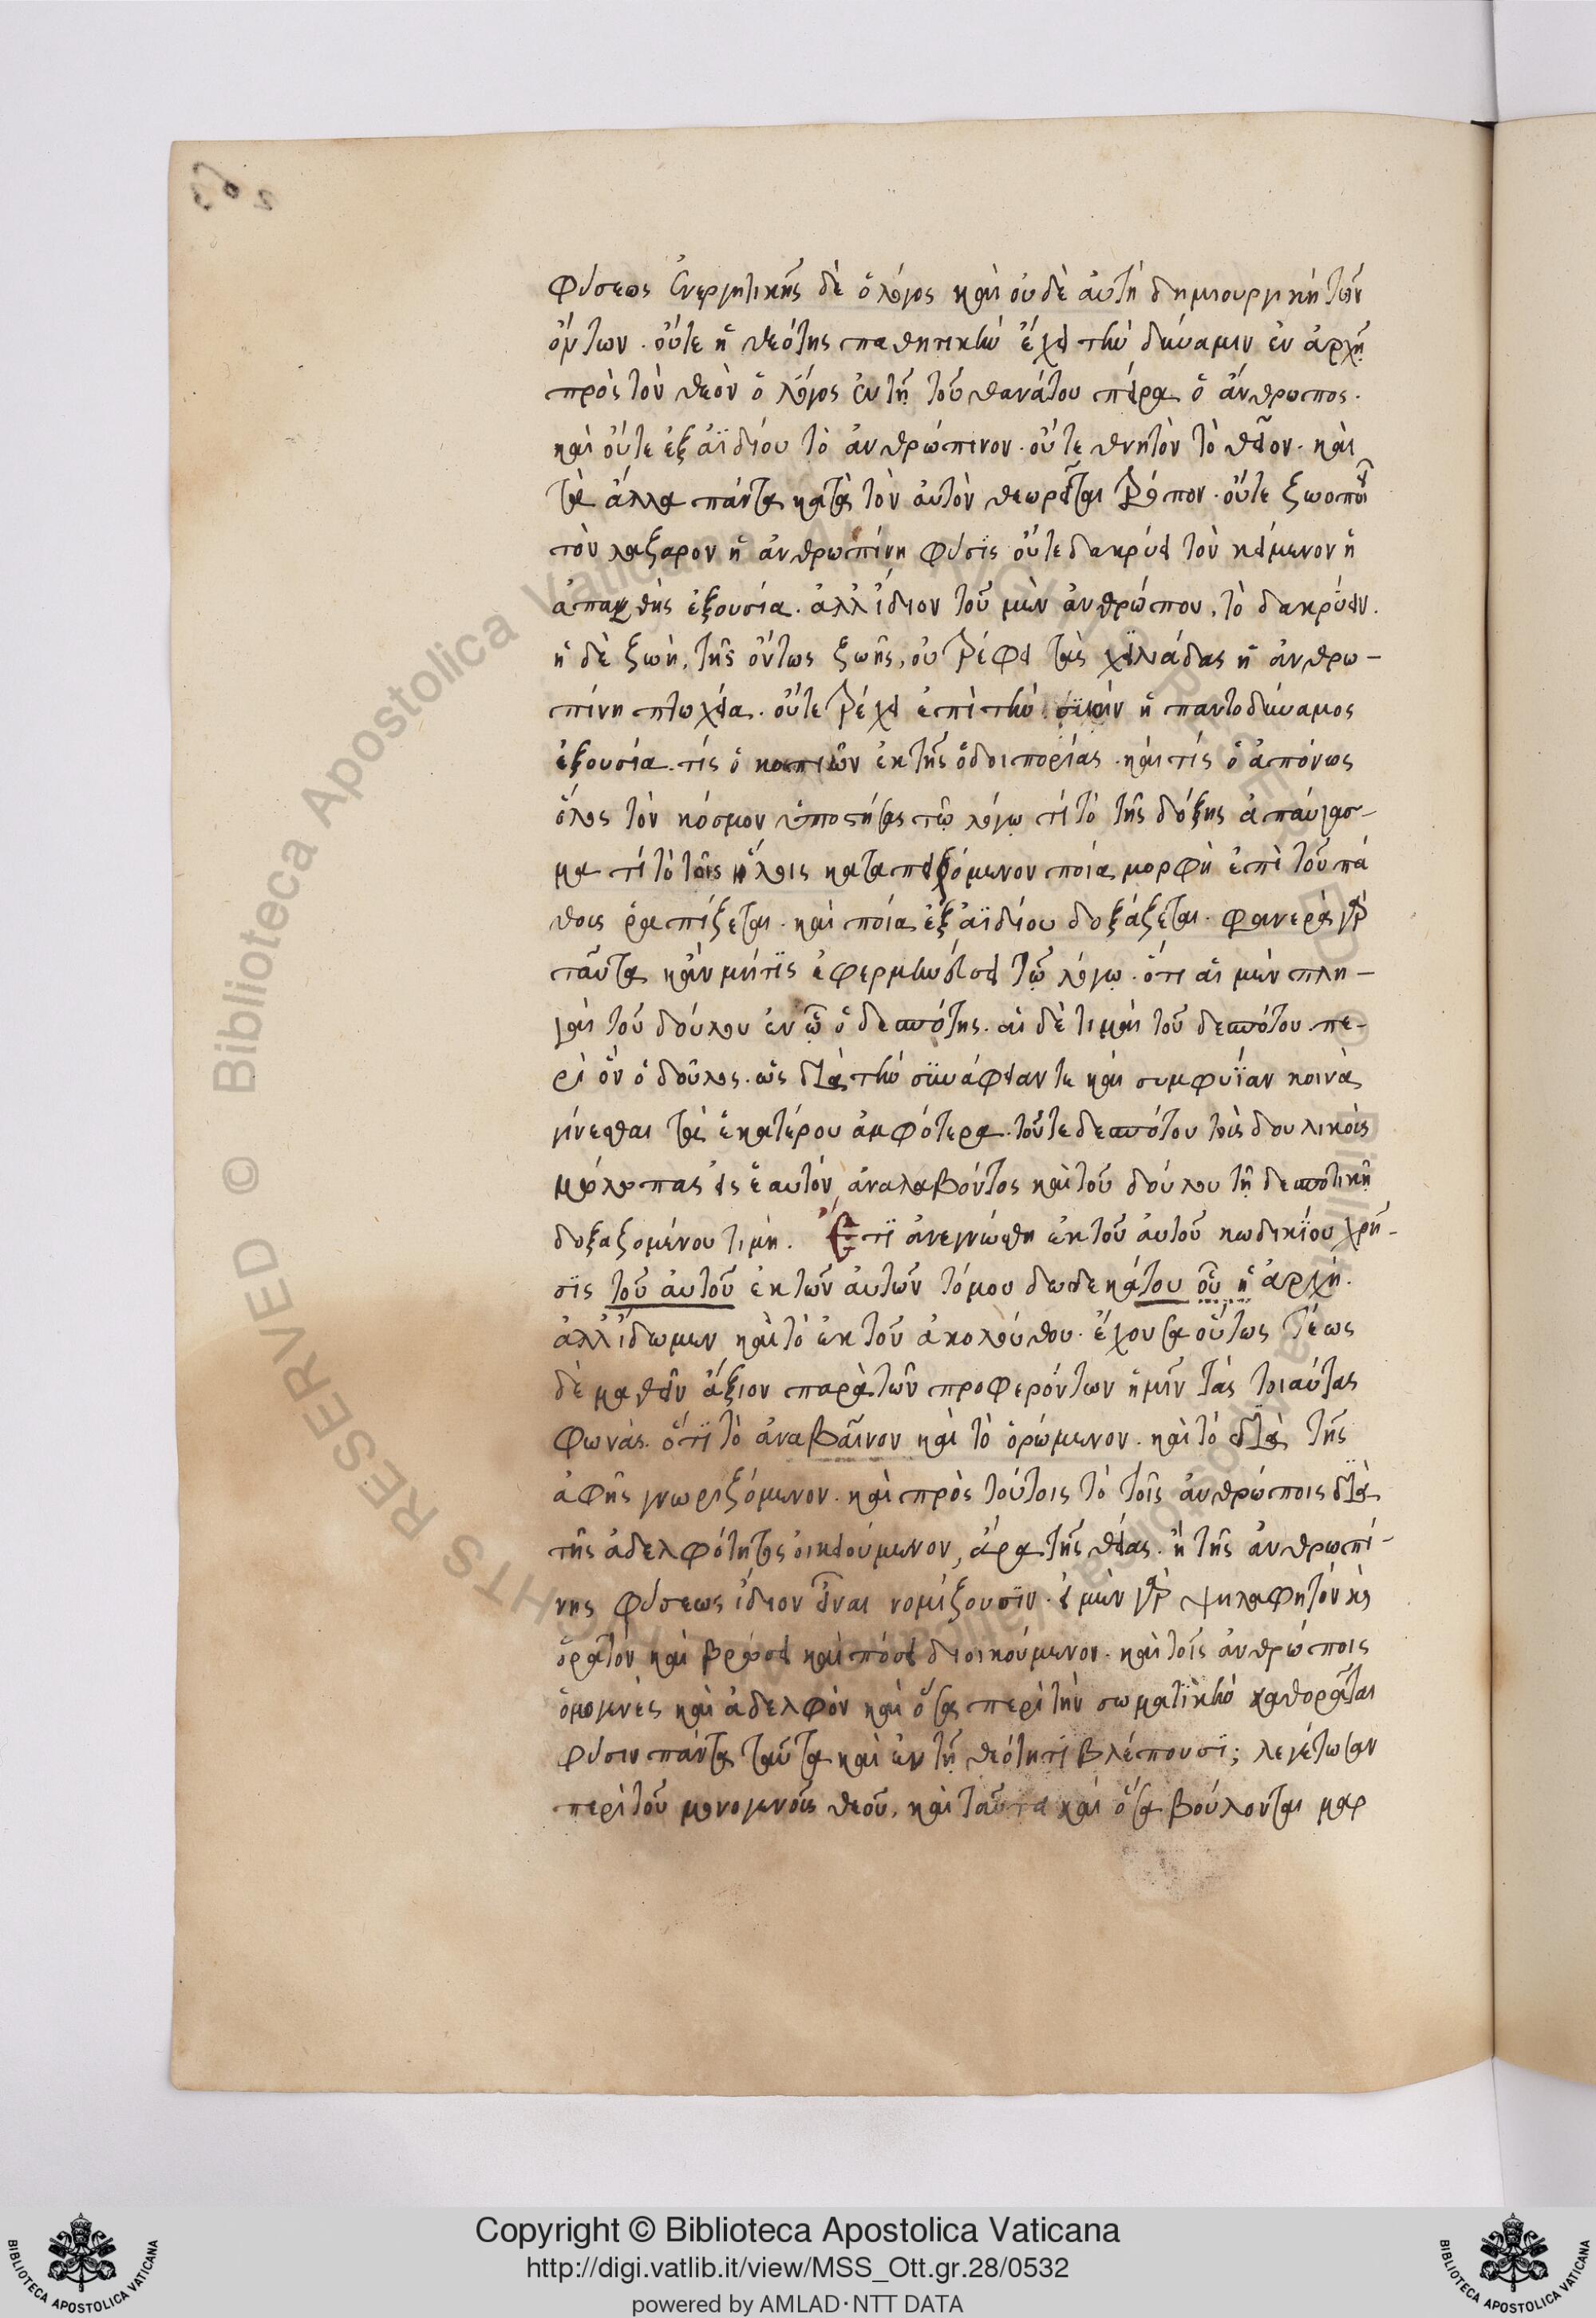 φύσεως ἐνεργητικῆς δὲ ὁ λόγος καὶ οὐδὲ αὐτὴ δημιουργικὴ τῶν
ὄντων. οὔτε ἡ θεότης παθητικὴν ἔχει τὴν δύναμιν ἐν ἀρχῇ
πρὸς τὸν θεὸν ὁ λόγος ἐν τῇ τοῦ θανάτου πείρα ὁ ἄνθρωπος.
καὶ οὔτε ἐξ ἀϊδίου τὸ ἀνθρώπινον. οὔτε θνητὸν τὸ θεῖον. καὶ
τὰ ἄλλα πάντα κατὰ τὸν αὐτὸν θεωρεῖται τρόπον. οὔτε ζωοποιεῖ
τὸν λαζαρον ἡ ἀνθρωπίνη φύσϊς οὔτε δακρύει τὸν κείμενον ἡ
ἀπαθὴς ἐξουσία. ἀλλ' ἴδιον τοῦ μὲν ἀνθρώπου, τὸ δακρύειν.
ἡ δὲ ζωὴ, τῆς ὄντως ζωῆς, οὐ τρέφει τὰς χϊλιάδας ἡ ἀνθρω-
πίνη πτωχεία. οὔτε τρέχει ἐπὶ τὴν συκῆν ἡ παντοδύναμος
ἐξουσία. τίς ὁ κοπιῶν ἐκ τῆς ὁδοιπορίας. καὶ τίς ὁ ἀπόνως
ὅλος τὸν κόσμον ὑποστήσας τῷ λόγῳ τί τὸ τῆς δόξης ἀπαύγασ-
μα τί τὸ τοῖς ἥλοις καταπειρόμενον ποία μορφὴ ἐπὶ τοῦ πά
θους ῥαπίζεται. καὶ ποία ἐξ ἀϊδίου δοξάζεται. φανερὰ γὰρ
ταῦτα κἂν μήτϊς ἐφερμηνεύσει τῷ λόγῳ. ὅτι αἱ μὲν πλη-
γαὶ τοῦ δούλου ἐν ᾧ ὁ δεσπότης. αἱ δὲ τιμαὶ τοῦ δεσπότου. πε-
ρὶ ὃν ὁ δοῦλος. ὡς διὰ τὴν συνάφειαν τε καὶ συμφυΐαν κοινὰ
γίνεσθαι τὰ ἑκατέρου ἀμφότερα. τοῦτε δεσπότου τοὺς δουλικοὺς
μώλωπας εἰς ἑαυτόν, ἀναλαβόντος καὶ τοῦ δούλου τῇ δεσποτικῇ
δοξαζομένου τιμῇ. Ἔτϊ ἀνεγνώσθη ἐκ τοῦ αὐτοῦ κωδικίου χρῆ-
σϊς τοῦ αὐτοῦ ἐκ τῶν αὐτῶν τόμου δωδεκάτου οὗ ἡ ἀρχὴ.
ἀλλ' ἴδωμεν καὶ τὸ ἐκ τοῦ ἀκολούθου. ἔχουσα οὕτως τέως
δὲ μαθεῖν ἄξιον παρὰ τῶν προφερόντων ἡμῖν τὰς τοιαύτας
φωνάς. ὅτϊ τὸ ἀναβαῖνον καὶ τὸ ὁρώμενον. καὶ τὸ διὰ τῆς
ἁφῆς γνωριζόμενον. καὶ πρὸς τούτοις τὸ τοῖς ἀνθρώποις διὰ
τῆς ἀδελφότητος οἰκειούμενον, ἆρα τῆς θείας. ἢ τῆς ἀνθρωπί-
νης φύσεως ἴδιον εἶναι νομίζουσϊν. εἰ μὲν γὰρ ψηλαφητὸν καὶ
ὁρατὸν καὶ βρώσει καὶ πόσει διοικούμενον. καὶ τοῖς ἀνθρώποις
ὁμογενὲς καὶ ἀδελφὸν καὶ ὅσα περὶ τὴν σωματϊκὴν καθορᾶται
φύσιν πάντα ταῦτα καὶ ἐν τῇ θεότητϊ βλέπουσϊ; λεγέτωσαν
περὶ τοῦ μονογενοῦς θεοῦ, καὶ ταῦτα καὶ ὅσα βούλονται μαρ
Copyright © Biblioteca Apostolica Vaticana
http://digi.vatlib.it/view/MSS_Ott.gr.28/0532
powered by AMLAD·NTT DATA
BIBLIOTECA APOSTOLICA VATICANA
BIBLIOTECA APOSTOLICA VATICANA